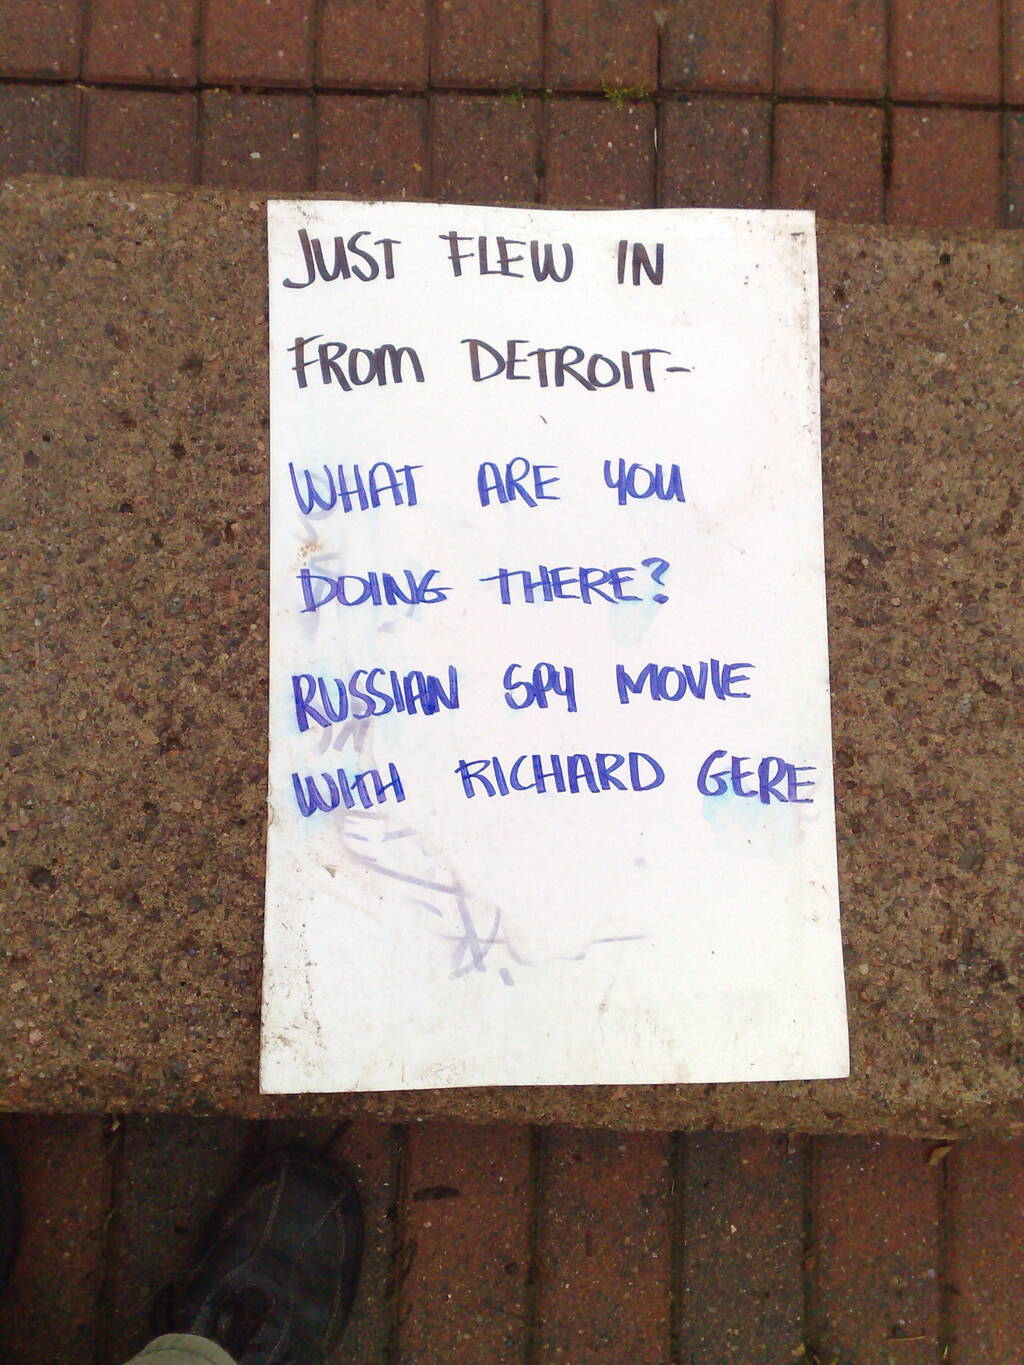 JUST FLEW IN
FROM DETROIT-
WHAT ARE YOU
DOING THERE?
RUSSIAN SPY MOVIE
WITH RICHARD GERE